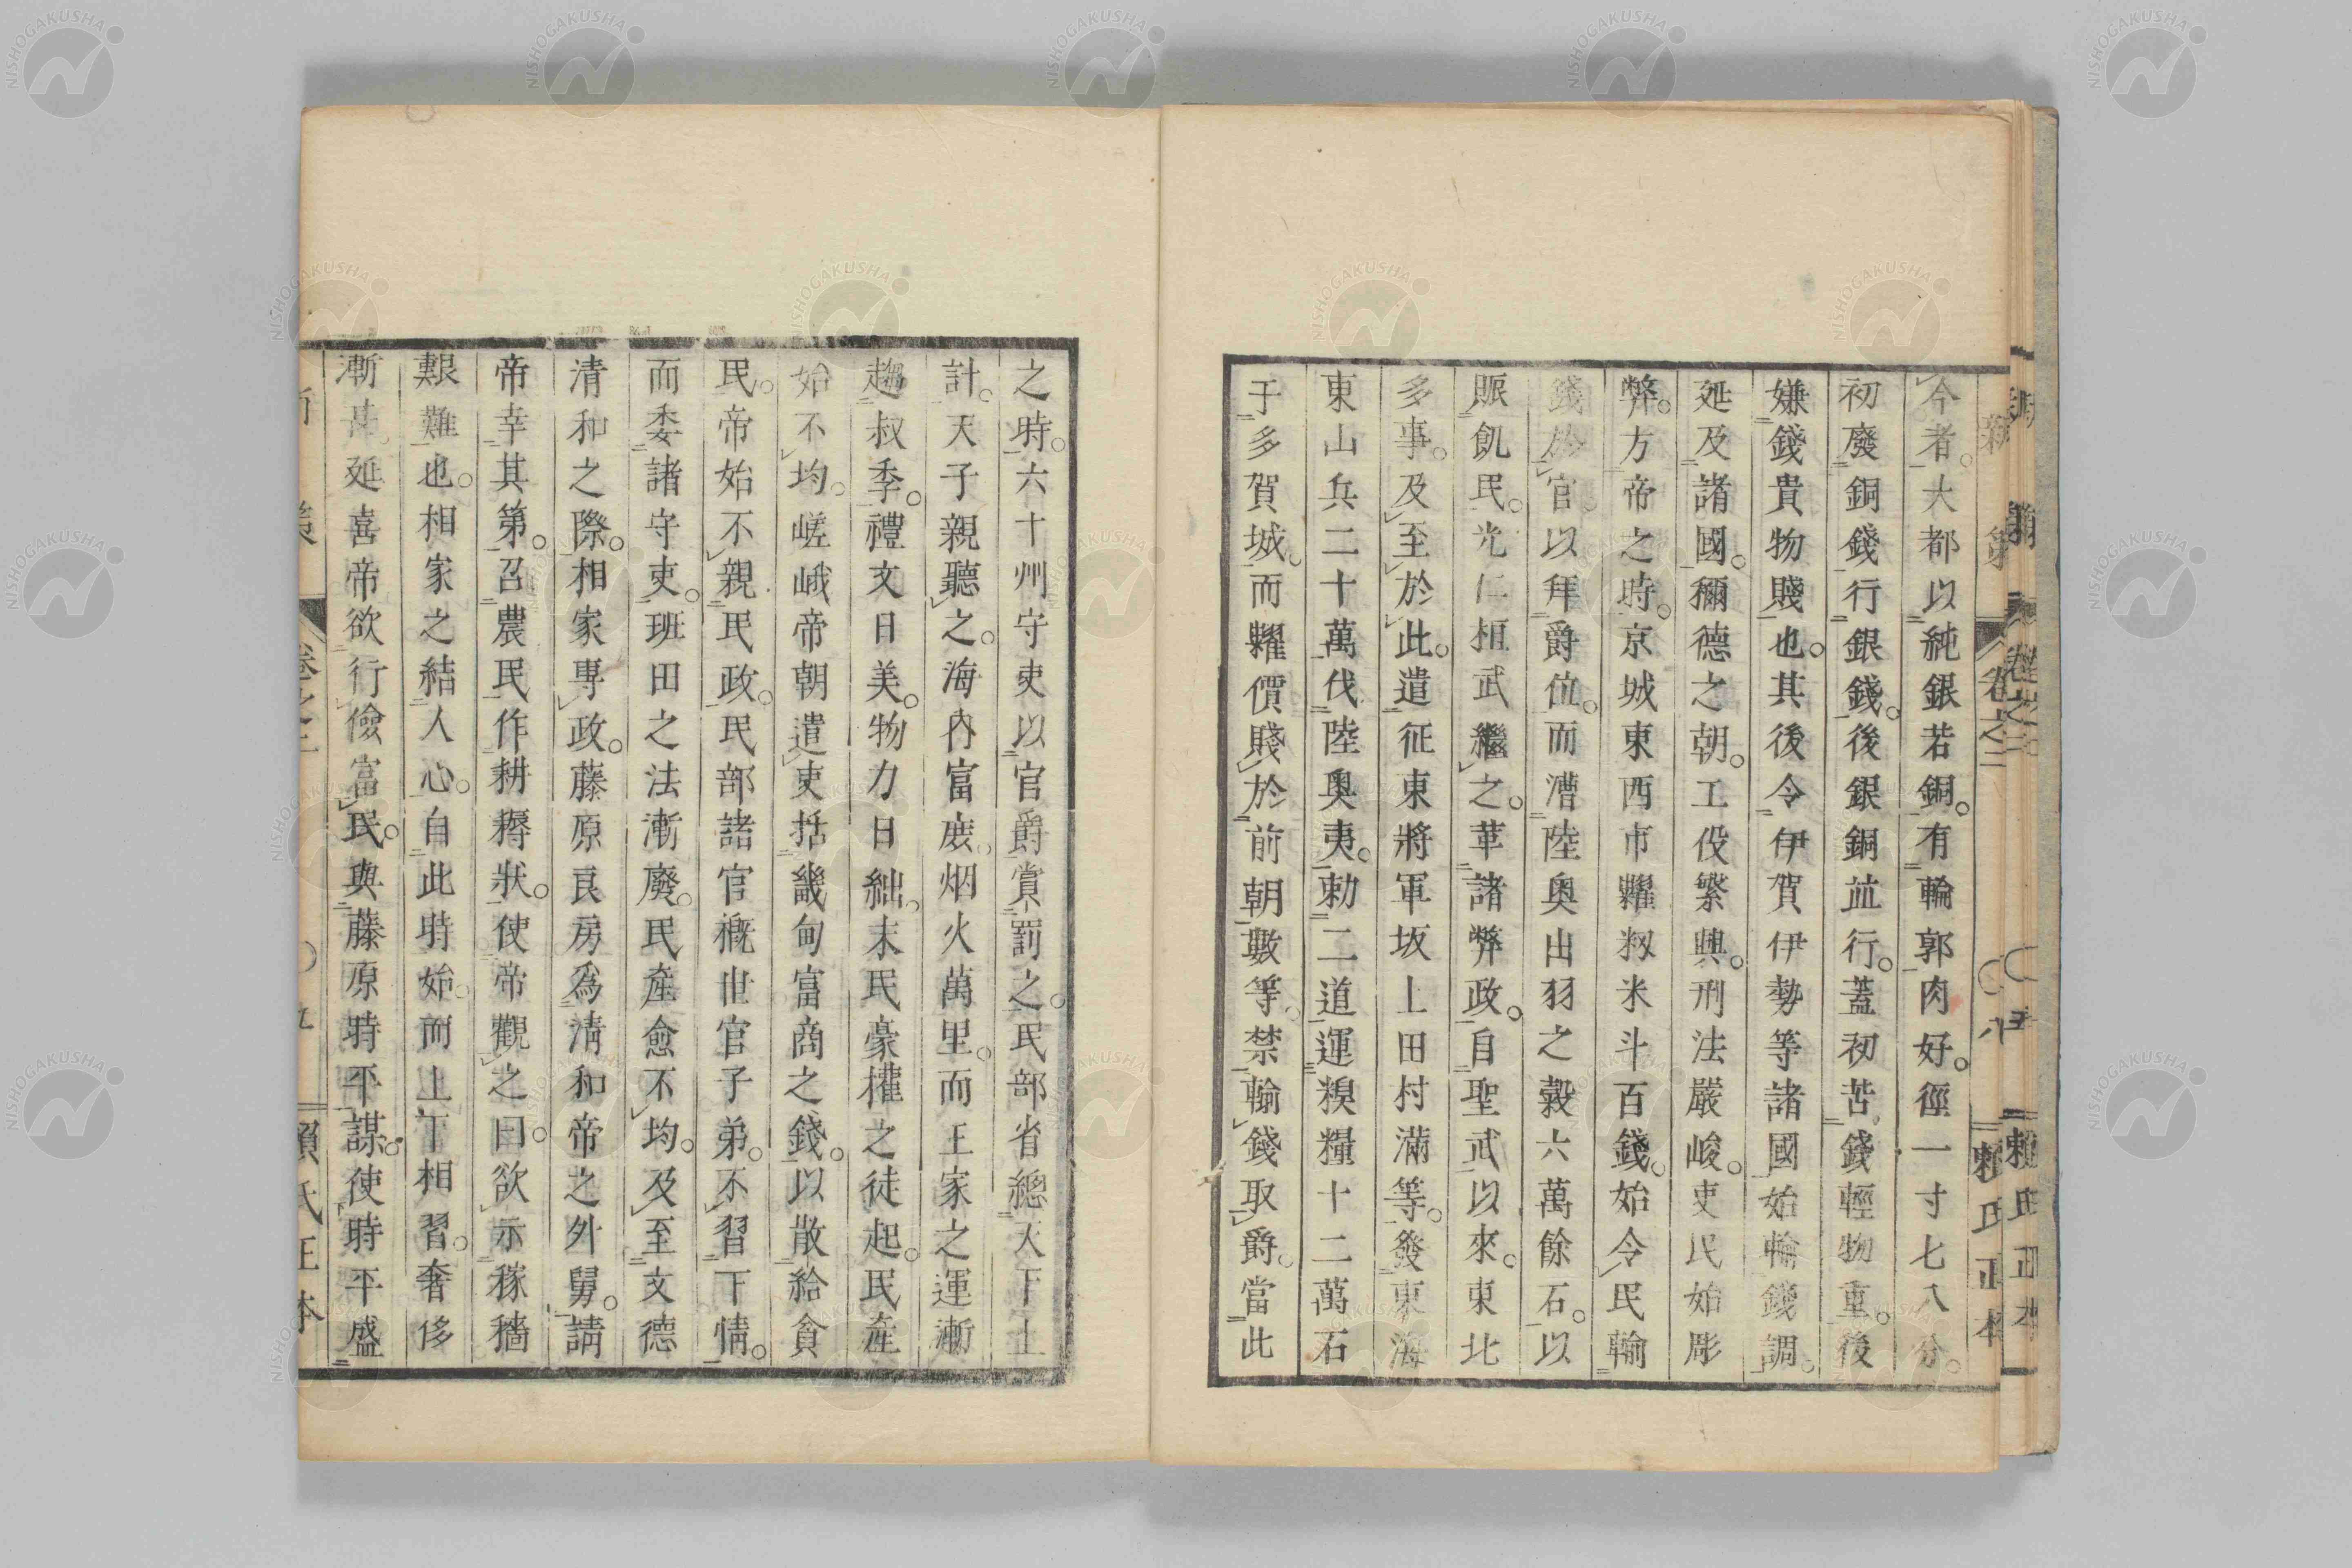 今者。大都以純銀若銅。有輪郭肉好。徑一寸七八分。
初廢銅錢行銀錢。後銀銅並行。蓋初苦錢輕物重。後
嫌錢貴物賤也。其後令伊賀伊勢等諸國始輸錢調。
延及諸國。稱德之朝。工役繁興。刑法嚴峻。吏民始彫
弊。方帝之時。京城東西市糶籾米斗百錢。始令民輸
錢於官。以拜爵位。而漕陸奧出羽之穀六萬餘石。以
賑飢民。光仁桓武繼之。革諸弊政。自聖武以來。東北
多事。及至於此。遣征東將軍坂上田村滿等。發東海
東山兵二十萬伐陸奧夷。勅二道運糗糧十二萬石
于多賀城。而糶價賤於前朝數等。禁輸錢取爵。當此
新策 卷之二 〇八 賴氏正本
之時。六十州守吏以官爵賞罰之。民部省總天下土
計。天子親聽之。海內富庶。烟火萬里。而王家之運漸
趨叔季。禮文日美。物力日絀。末民豪權之徒起。民產
始不均。嵯峨帝朝遣吏括畿甸富商之錢。以散給貧
民。帝始不親民政。民部諸官概世官子弟。不習下情。
而委諸守吏。班田之法漸廢。民產愈不均。及至文德
清和之際。相家專政。藤原良房爲淸和帝之外舅。請
帝幸其第。召農民作耕耨狀。使帝觀之曰。欲示稼穡
艱難也。相家之結人心。自此時始。而上下相習。奢侈
漸甚。延喜帝欲行儉富民。與藤原時平謀。使時平盛